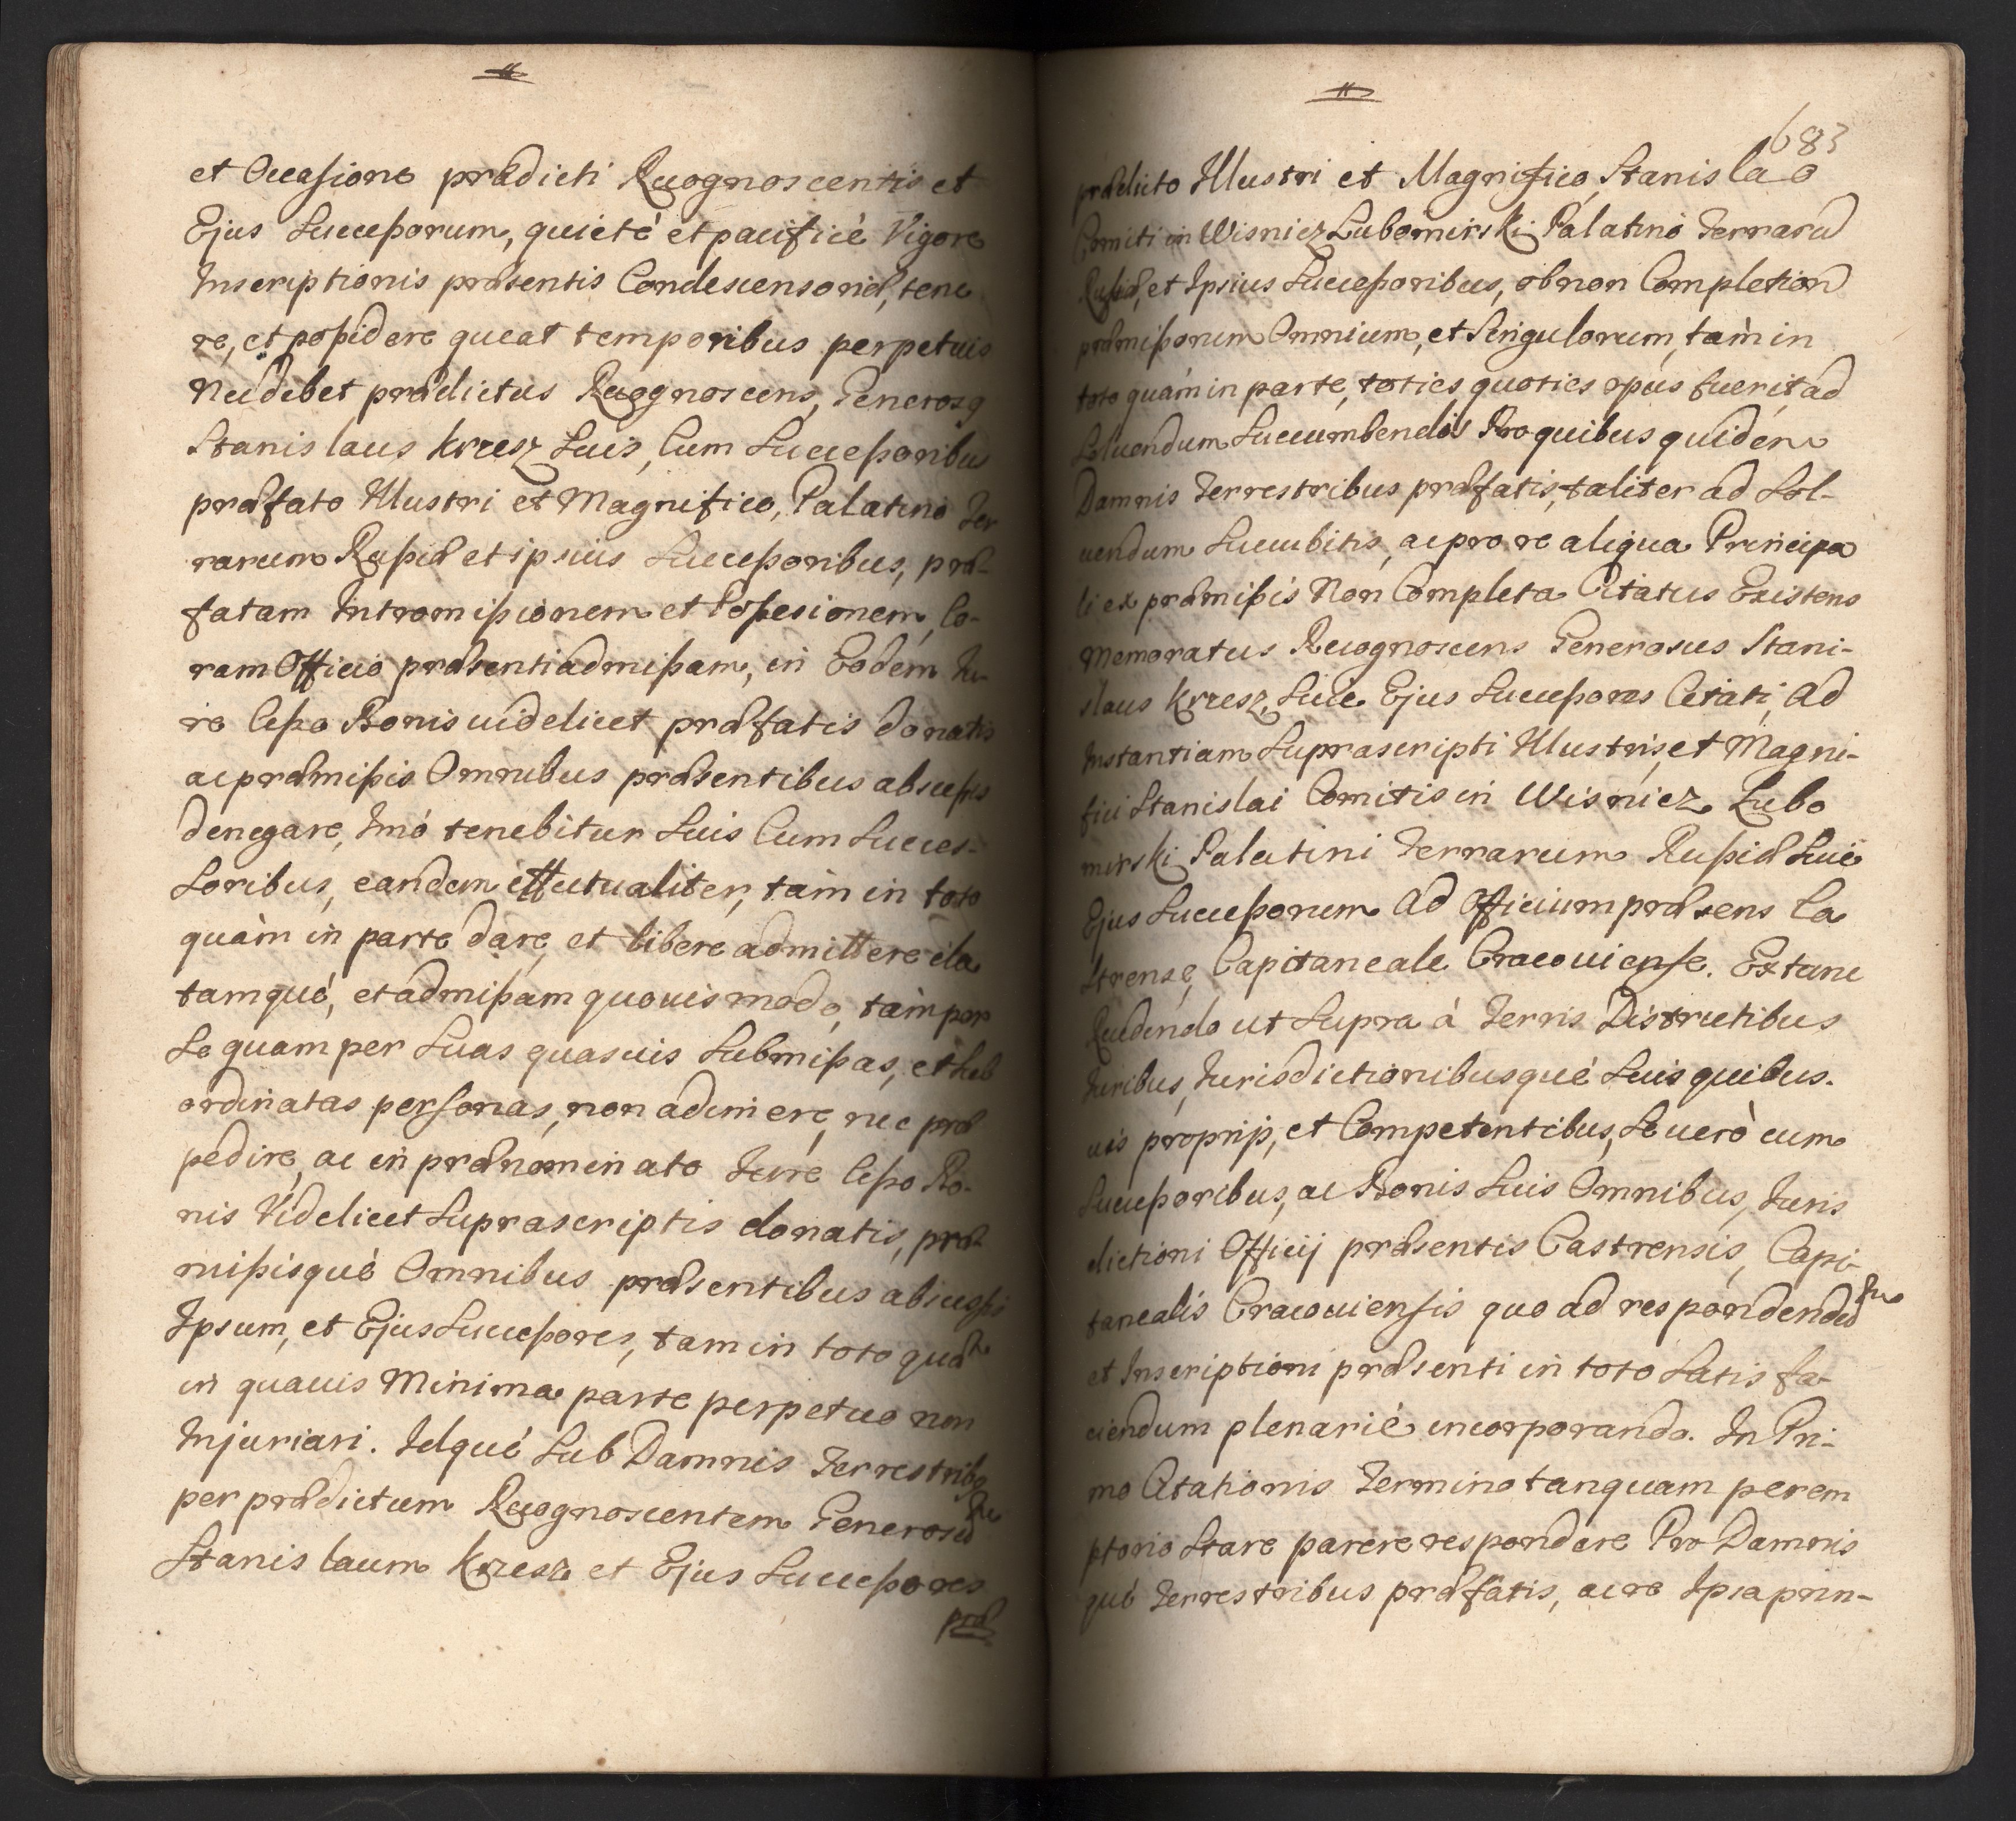 et Occasione prædicti Recognoscentis et
Ejus Successorum, quietè et pacificè Vigore
Inscriptionis præsentis Condescensoriæ, tene
re, et possidere queat temporibus perpetuis
Nec debet prædictus Recognoscens, Generosq
Stanislaus Krzesz Suis, Cum Successoribus
præfato Illustri et Magnifico, Palatino Ter
rarum Russiæ et ipsius Successoribus, præ-
fatam Intromissionem et Possesionem, Co-
ram Officio præsenti admissam, in Eodem Iu-
re Cesso Bonis uidelicet præfatis donatis
ac præmissis Omnibus præsentibus abscessis
denegare, Imò tenebitur Suis Cum Succes-
soribus, eandem effectualiter, tàm in toto
quàm in parte dare, et libere admittere da
tamquè, et admissam quouis modo, tàm per
Se quam per Suas quasuis Submissas, et Sub
ordinatas personas, non adimere, nec præ
pedire, ac in prænominato Iure Cesso Bo-
nis Videlicet Suprascriptis donatis, præ-
missisquè Omnibus præsentibus abscessis
Ipsum, et Ejus Successores, tam in toto quàm
in quauis Minima parte perpetuo non
Injuriari. Idquè Sub Damnis Terrestribq
per prædictum Recognoscentem Generosum
Stanislaum Krzesz et Ejus Successores
præ
683
prædicto Illustri et Magnifico Stanislao
Comiti in Wisnicz Lubomirski Palatino Terraru
Russiæ, et Ipsius Successoribus, ob non Completion
præmissorum Omnium, et Singulorum, tàm in
toto quàm in parte, toties quoties opus fuerit ad
Soluendum Succumbendis Pro quibus quidem
Damnis Terrestribus præfatis, taliter ad Sol-
uendum Succubitis, ac pro re aliqua Principa
li ex præmissis Non Completa Citatus Existens
Memoratus Recognoscens Generosus Stani-
slaus Krzesz, Siue Ejus Successores Citati, ad
Instantiam Suprascripti Illustris, et Magni-
fici Stanislai Comitis in Wisnicz Lubo
mirski Palatini Terrarum Russiæ Siuè
Ejus Successorum ad Officium præsens Ca
strense, Capitaneale Cracouiense. Ex tunc
Recedendo ut Supra à Terris Districtibus
Iuribus, Iurisdictionibusquè Suis quibus-
uis proprijs, et Competentibus, Se uerò cum
Successoribus, ac Bonis Suis Omnibus, Iuris
dictioni Officij præsentis Castrensis, Capi-
tanealis Cracouiensis quo ad respondendum
et Inscriptioni præsenti in toto Satis fa-
ciendum plenariè incorporando. In Pri-
mo Citationis Termino tanquam perem
ptorio Stare parere respondere Pro Damnis
què Terrestribus præfatis, ac re Ipsa prin-